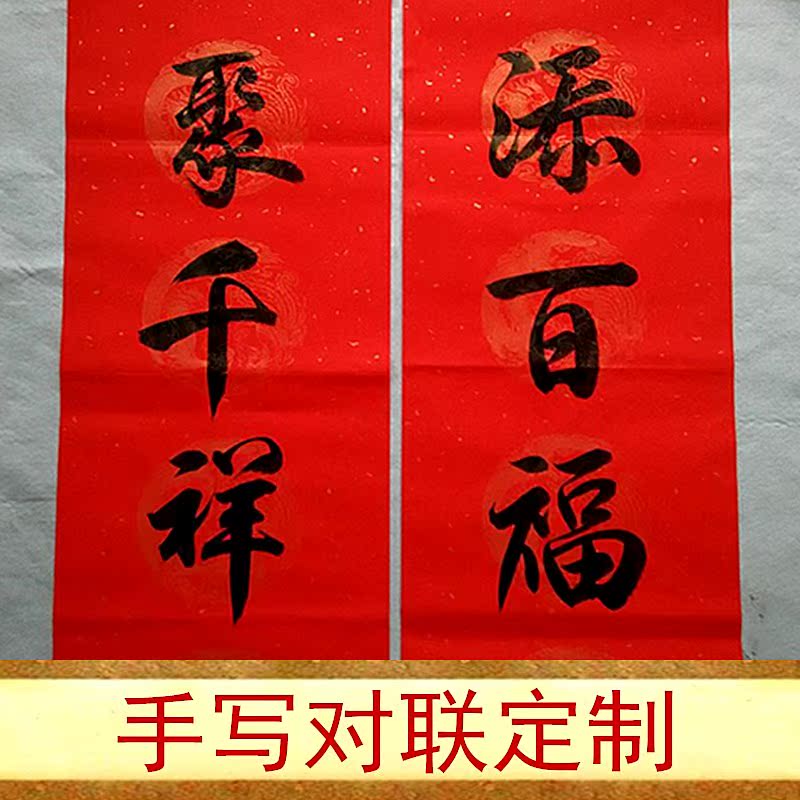 添百福
聚千祥
手写对联定制